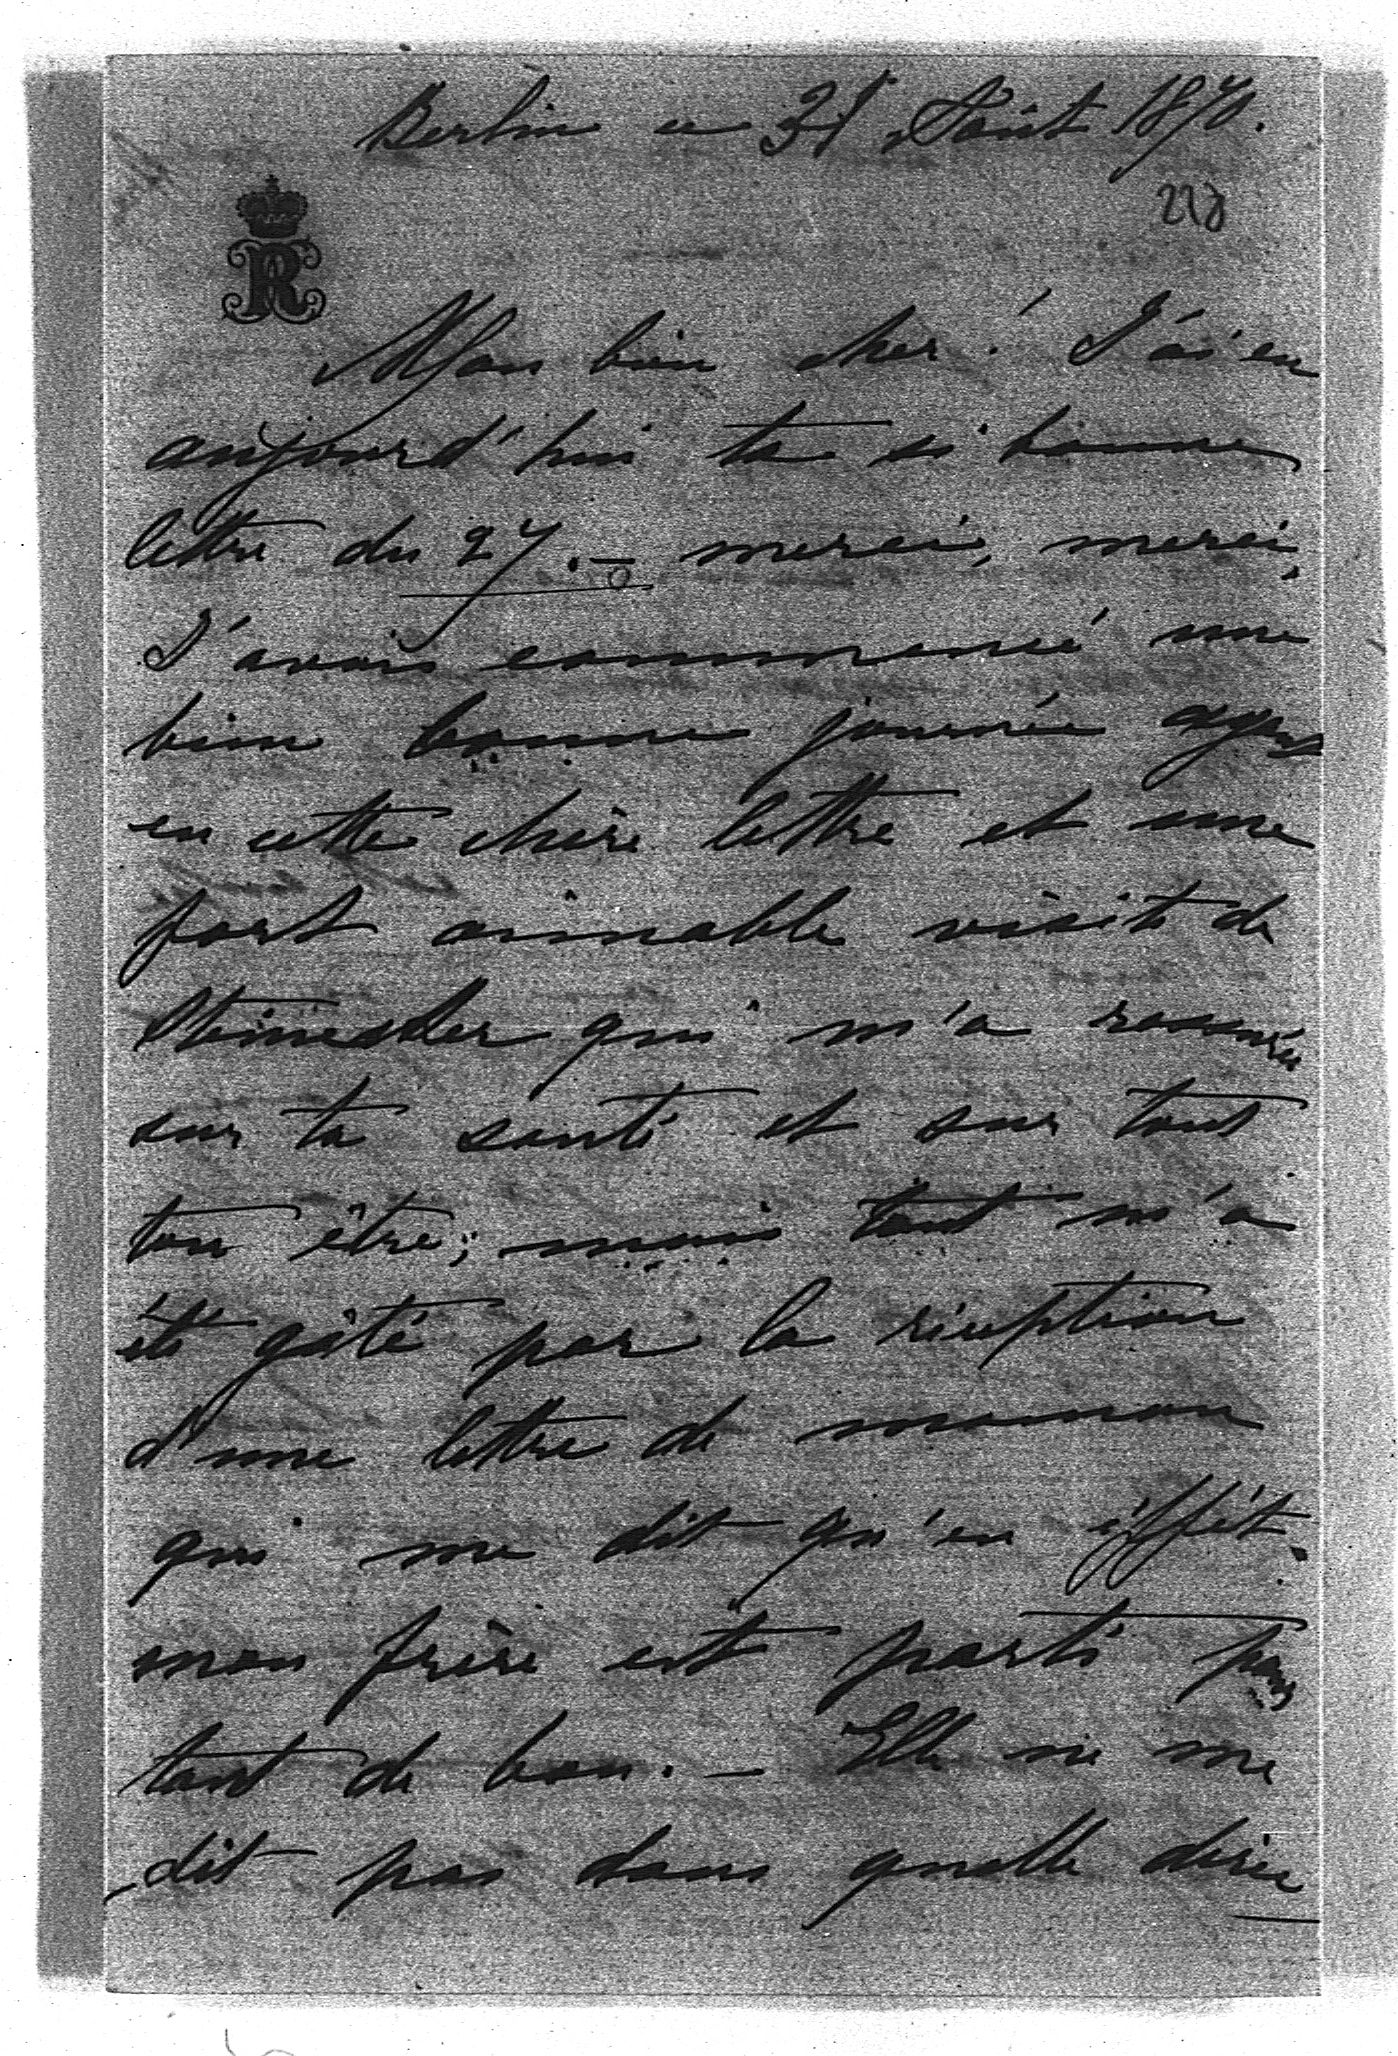 Berlin ce 31 Août 1870.
R
Mon bien cher! J'ai eu
aujourd'hui ta si bonne
lettre du 27. — merci, merci,
J'avais commencé une
bien bonne journée ayant
eu cette chère lettre et une
fort aimable visite de
qui m'a rassurée
sur ta santé et sur tout
ton être; mais tout m'a
été gâté par la réception
d'une lettre de maman
qui me dit qu'en éffét
mon frère est parti pour
tant de bon. — Elle ne me
dit pas dans quelle direc